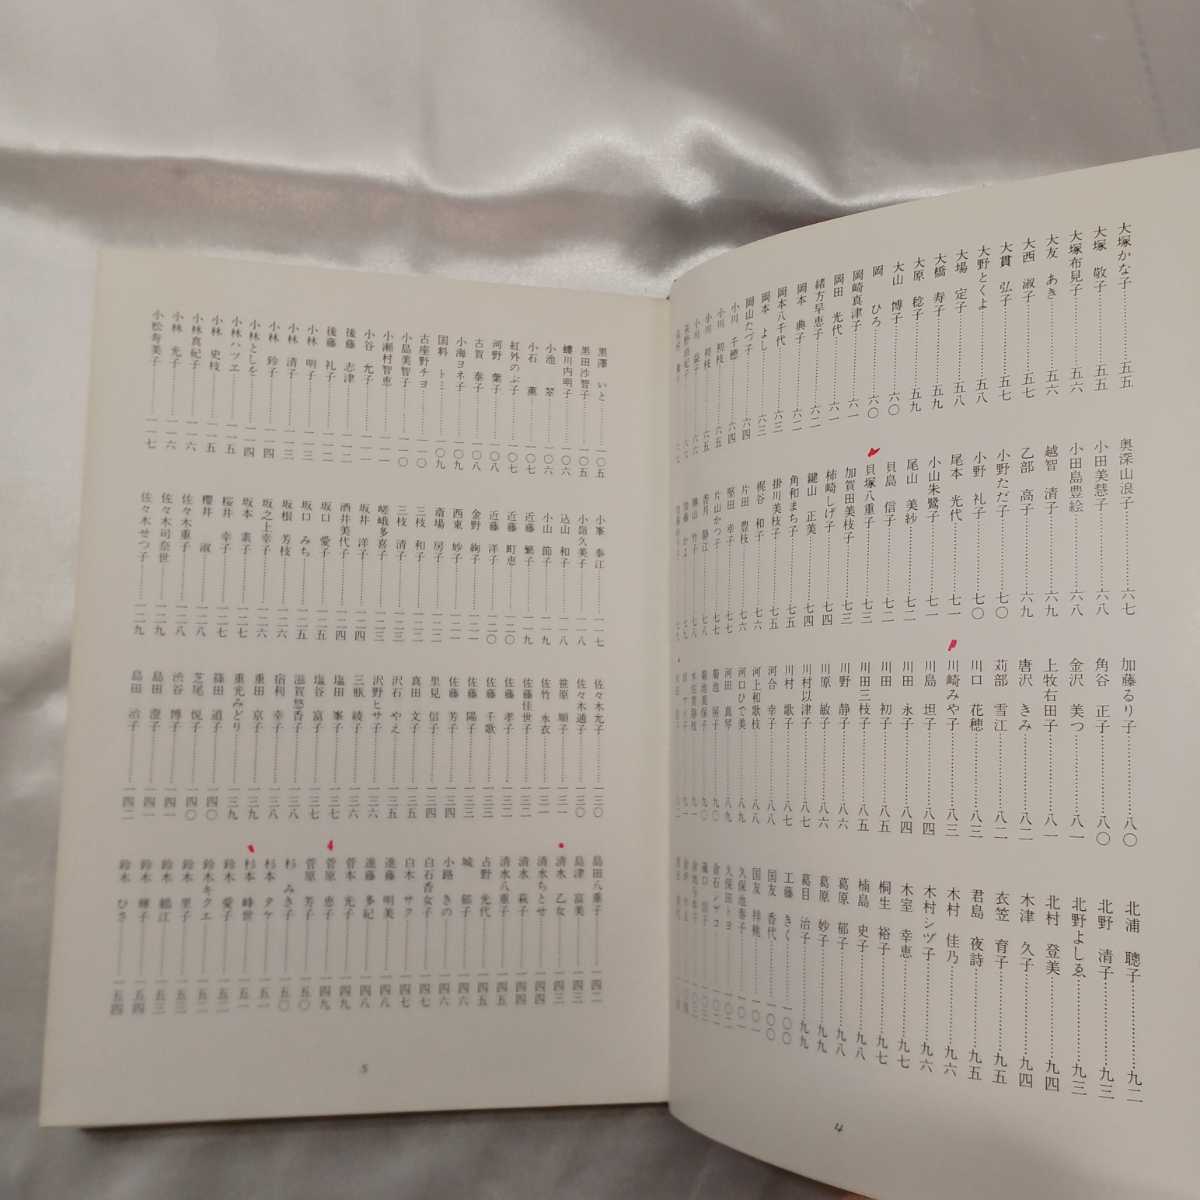 大塚かな子……五五
大塚 敬子……五五
大塚布見子……五六
大友 あき……五六
大西 淑子……五七
大貫 弘子……五七
大野とくよ……五八
大場 定子……五八
大橋 寿子……五九
大原 稔子……五九
大山 博子……六〇
岡 ひろ……六〇
岡崎真津子……六一
岡田 光代……六一
緒方早恵子……六二
岡本 典子……六二
岡本八千代……六三
岡本 よし……六三
岡山たづ子……六四
小川 千穂……六四
小川 初枝……六五
奥深山浪子……六七
小田美慧子……六八
小田島豊絵……六八
越智 清子……六九
乙部 高子……六九
小野ただ子……七〇
小野 礼子……七〇
尾本 光代……七一
小山朱鷺子……七一
尾山 美紗……七二
貝島 信子……七二
貝塚八重子……七三
加賀田美枝子……七三
柿崎しげ子……七四
鍵山 正美……七四
角和まち子……七五
掛川美枝子……七五
梶谷 和子……七六
片田 豊枝……七六
堅田 幸子……七七
片山かつ子……七七
香月 静江……七八
加藤るり子……八〇
角谷 正子……八〇
金沢 美つ……八一
上牧右田子……八一
唐沢 きみ……八二
苅部 雪江……八二
川口 花穂……八三
川崎みや子……八三
川島 坦子……八四
川田 永子……八四
川田 初子……八五
川田三枝子……八五
川野 静子……八六
川原 敏子……八六
川村以津子……八七
川村 歌子……八七
河合 幸子……八八
河上和歌枝……八八
河口ひで美……八九
河田 真琴……八九
菊池 展子……九〇
菊池美保子……九〇
北浦 聰子……九二
北野 清子……九三
北野よしゑ……九三
北村 登美……九四
木津 久子……九四
衣笠 育子……九五
君島 夜詩……九五
木村 佳乃……九六
木村シヅ子……九六
木室 幸恵……九七
桐生 裕子……九七
楠島 史子……九八
葛原 郁子……九八
葛原 妙子……九九
葛目 治子……九九
工藤 きく……一〇〇
国友 香代……一〇〇
久保池泰子……一〇一
久保田トヨ……一〇二
4
黒澤 いと……一〇五
黒田沙智子……一〇五
蜷川内明子……一〇六
小池 翠……一〇六
小石 薫……一〇七
紅外のぶ子……一〇七
河野 葉子……一〇八
古賀 泰子……一〇八
小海ヨネ子……一〇九
国料 ト……一〇九
古座野チヨ……一一〇
小島美智子……一一〇
小瀬村智恵……一一一
小谷 允子……一一一
後藤 志津……一一二
後藤 礼子……一一二
小林 明子……一一三
小林 清子……一一三
小林 鈴子……一一四
小林としを……一一四
小林ハツエ……一一五
小林 史枝……一一五
小林真紀子……一一六
小林 光子……一一六
小松寿美子……一一七
小峯 泰江……一一七
小嶺久美子……一一八
込山 和子……一一八
小山 節子……一一九
近藤 繁子……一一九
近藤 町恵……一二〇
近藤 洋子……一二〇
金野 絢子……一二一
西東 妙子……一二一
斎場 房子……一二二
三枝 和子……一二二
三枝 清子……一二三
嵯峨多喜子……一二三
坂井 洋子……一二四
酒井美代子……一二四
坂口 愛子……一二五
坂口 みち……一二五
坂根 芳枝……一二六
坂之上幸子……一二六
坂本 素子……一二七
桜井 幸子……一二七
櫻井 淑……一二八
佐々木重子……一二八
佐々木司奈世……一二九
佐々木せつ子……一二九
佐々木允子……一三〇
佐々木通子……一三〇
笹原 順子……一三一
佐竹 永衣……一三一
佐藤佳世子……一三二
佐藤 孝子……一三二
佐藤 千歌……一三三
佐藤 陽子……一三三
佐藤 芳子……一三四
里見 信子……一三四
真田 文子……一三五
沢石 やえ……一三五
沢野ヒサ子……一三六
三瓶 綾子……一三六
塩田 峯子……一三七
塩谷 富子……一三七
滋賀悠香子……一三八
宿利 幸子……一三八
重田 京子……一三九
重光みどり……一三九
篠田 道子……一四〇
芝尾 悦子……一四〇
渋谷 博子……一四一
島田 澄子……一四一
島田 治子……一四二
島田八重子……一四二
島津 富美……一四三
清水 乙女……一四三
清水ちとせ……一四四
清水 萩子……一四四
清水八重子……一四五
占野 光代……一四五
城 郁子……一四六
小路 きの……一四六
白石香女子……一四七
白木 サク……一四七
進藤 明美……一四八
進藤 多紀……一四八
菅本 光子……一四九
菅原 恵子……一四九
菅原 芳子……一五〇
杉 みき子……一五〇
杉本 タケ……一五一
杉本 峰世……一五一
鈴木 愛子……一五二
鈴木キクエ……一五二
鈴木 里子……一五三
鈴木 總江……一五三
鈴木 輝子……一五四
鈴木 ひさ……一五四
5